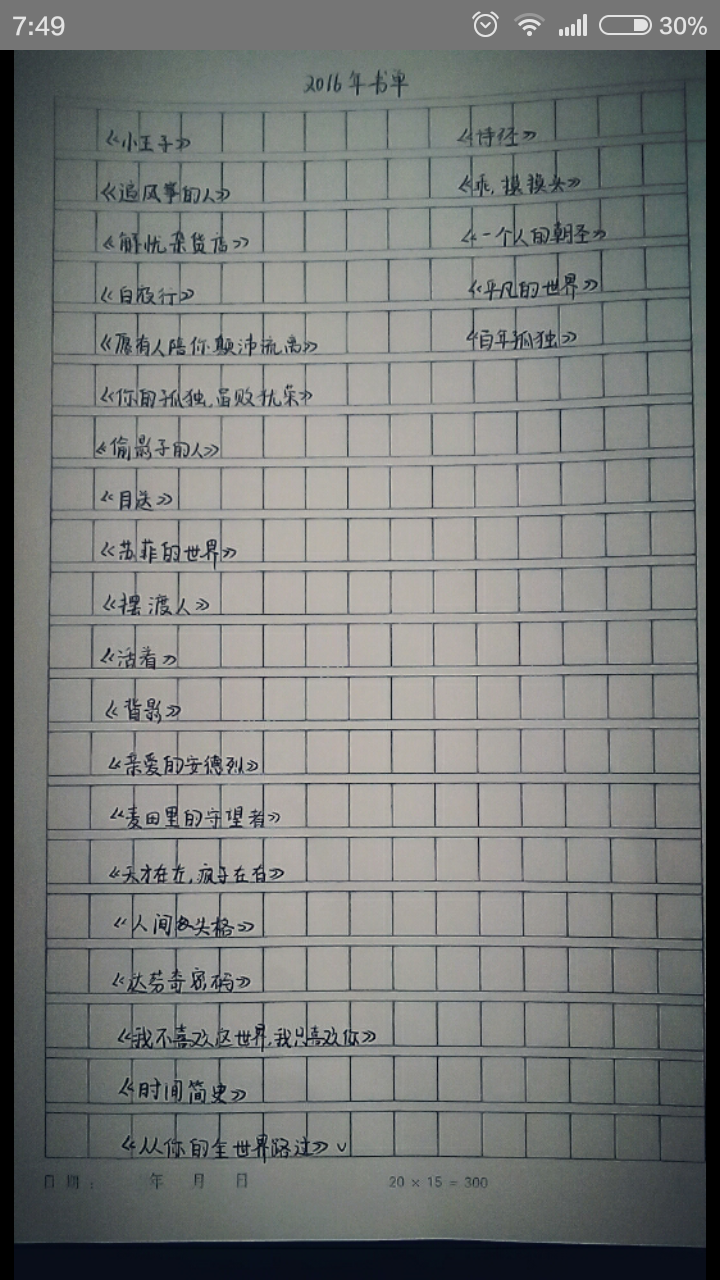 7:49 30%
2016年书单
《小王子》 《诗经》
《追风筝的人》 《乖,摸摸头》
《解忧杂货店》 《一个人的朝圣》
《白夜行》 《平凡的世界》
《愿有人陪你颠沛流离》 《百年孤独》
《你的孤独,虽败犹荣》
《偷影子的人》
《目送》
《苏菲的世界》
《摆渡人》
《活着》
《背影》
《亲爱的安德烈》
《麦田里的守望者》
《天才在左,疯子在右》
《人间失格》
《达芬奇密码》
《我不喜欢这世界,我只喜欢你》
《时间简史》
《从你的全世界路过》√
日期: 年 月 日 20 × 15 = 300